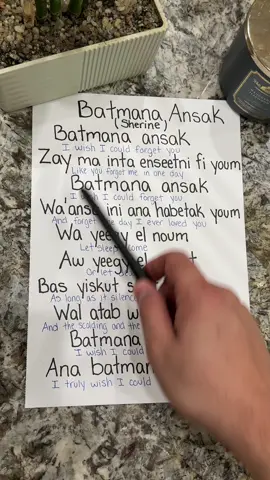 Batmana Ansak
(Sherine)
Batmana ansak
I wish I could forget you
Zay ma inta enseetni fi youm
Like you forgot me in one day
Batmana ansak
I wish I could forget you
Wa'anse ini ana habetak youm
And forget one day I ever loved you
Wa yeegy el noum
Let sleep come
Aw yeegy el
Or let
Bas yiskut
As long as it silence
Wal atab w
And the scolding and the
Batmana
I wish I could
Ana batman
I truly wish I could